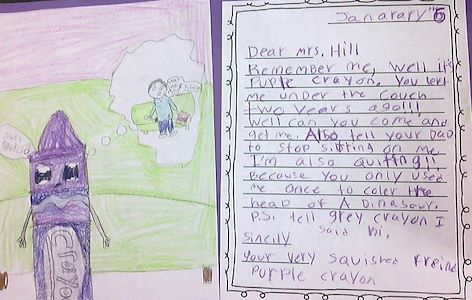 crayo
Janarary "6
Dear Mrs. Hill
Remember me, well it's
Purple crayon. You left
me under the couch
two years ago!!!
Well can you come and
get me. Also tell your Dad
to stop sitting on me
I'm also quitting!!
Because you only used
me once to coler the
head of A Dinasaur.
P.S. tell grey crayon I
said hi.
Sincilly
Your very squished Freind
Purple crayon